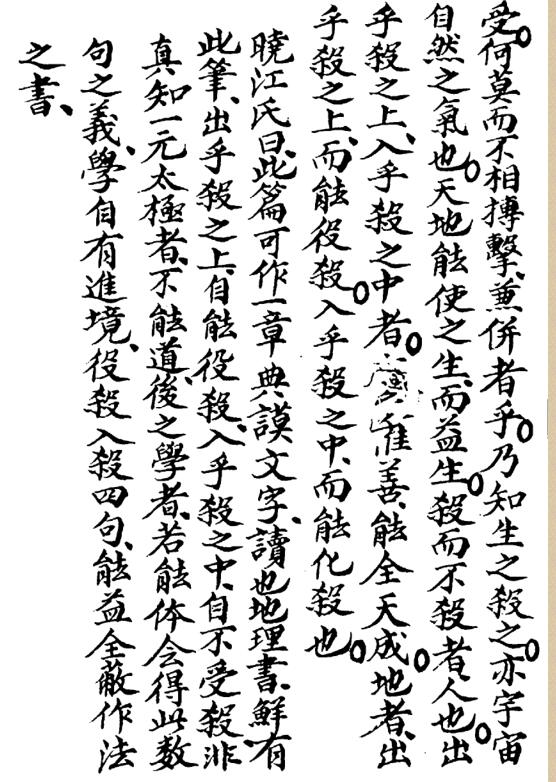 受何莫而不相搏擊、兼併者乎。乃知生之殺之。亦宇宙
自然之氣也。天地能使之生、而益生。殺而不殺者、人也。出
乎殺之上、入乎殺之中者。惟善、能全天成地者、出
乎殺之上、而能役殺。入乎殺之中、而能化殺也。
曉江氏曰、此篇可作一章典謨文字、讀也地理書、鮮有
此筆、出乎殺之上、自能役殺、入乎殺之中、自不受殺、非
真知一元太極者、不能道、後之學者、若能体会得此数
句之義、學自有進境、役殺入殺四句、能益全蔽作法
之書、